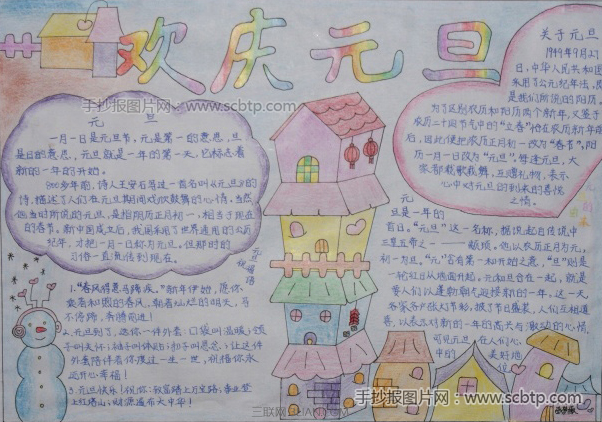 欢庆元旦
手抄报图片网：www.scbtp.com
元 旦
一月一日是元旦节，元是第一的意思，旦
是日的意思，元旦就是一年的第一天，它标志着
新的一年的开始。
900多年前，诗人王安石写过一首名叫《元日》的
诗，描述了人们在元旦期间
春节。新中国成立后，我国采用了世界通用的公历
纪年，才把一月一日称为元旦，但那时的
习俗一直流传到现在。
元旦祝福语
1、"春风得意马蹄疾。"新年伊始，愿你
乘着和图的春风，朝着灿烂的明天，马
不停蹄，奔腾前进！
2、元旦到了，送你一件外套：口袋叫温暖；领
子叫关怀；袖子叫体贴；扣子叫思念；让这件
外套陪伴着你渡过一生一世，祝福你永
远开心幸福！
3、元旦快乐！祝你：致富路上万里路；事业登
上红塔山；财源遍布大中华！
关于元旦
1949年9月27
日，中华人民共和国
采用了公元纪年法，即
是我们所说的阳历，
为了区别农历和阳历两个新年，又鉴于
农历二十四节气中的"立春"恰在农历新年前
后，因此便把农历正月初一改为"春节"，阳
历一月一日改为"元旦"，每逢元旦，大
家都载歌载舞，互赠礼物，表示
心中对元旦的到来的喜悦
之情。
元
旦是一年的
首日，"元旦"这一名称，据说起自传说中
三皇五帝之一——颛顼，他以农历正月为元，
初一为旦，"元"含有第一和开始之意，"旦"则是
一轮红日从地面升起，元和旦合在一起，就是
要人们以蓬勃朝气迎接新的一年，这一天
家家户户张灯结彩，披了节日盛装，人们互相道
喜，以表达对新的一年的高兴与激动的心情，
可见元旦
在人们心
中的
美好地
位
手抄报图片网：www.scbtp.com
三联网 3LIAN.COM